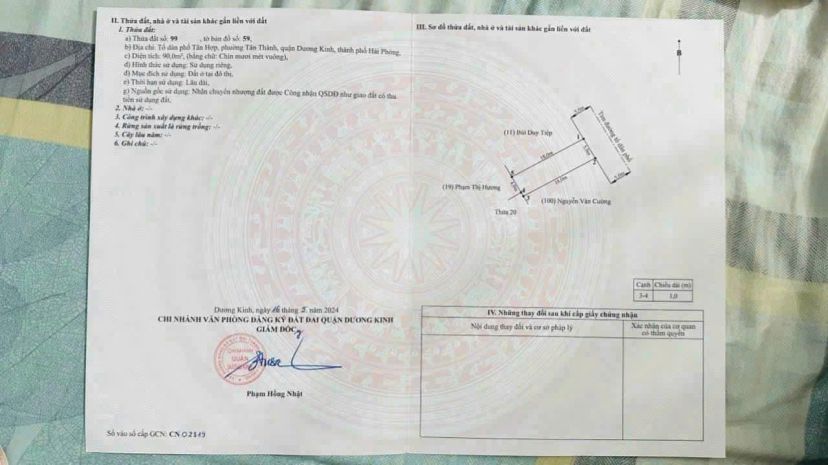 II. Thửa đất, nhà ở và tài sản khác gắn liền với đất
1. Thửa đất:
a) Thửa đất số: 99 , tờ bản đồ số: 59,
b) Địa chỉ: Tổ dân phố Tân Hợp, phường Tân Thành, quận Dương Kinh, thành phố Hải Phòng,
c) Diện tích: 90,0m², (bằng chữ: Chín mươi mét vuông),
d) Hình thức sử dụng: Sử dụng riêng,
đ) Mục đích sử dụng: Đất ở tại đô thị,
e) Thời hạn sử dụng: Lâu dài,
g) Nguồn gốc sử dụng: Nhận chuyển nhượng đất được Công nhận QSDĐ như giao đất có thu
tiền sử dụng đất,
2. Nhà ở: -/-
3. Công trình xây dựng khác: -/-
4. Rừng sản xuất là rừng trồng: -/-
5. Cây lâu năm: -/-
6. Ghi chú: -/-
Dương Kinh, ngày 16 tháng 5 năm 2024
CHI NHÁNH VĂN PHÒNG ĐĂNG KÝ ĐẤT ĐAI QUẬN DƯƠNG KINH
GIÁM ĐỐC
Phạm Hồng Nhật
Số vào sổ cấp GCN: CN
III. Sơ đồ thửa đất, nhà ở và tài sản khác gắn liền với đất
B
(11) Bùi Duy Tiệp
Tim đường tổ dân phố
18,0m
(19) Phạm Thị Hương
18,0m
(100) Nguyễn Văn Cường
Thửa 20
Cạnh Chiều dài (m)
3-4 1,0
IV. Những thay đổi sau khi cấp giấy chứng nhận
Nội dung thay đổi và cơ sở pháp lý
Xác nhận của cơ quan
có thẩm quyền